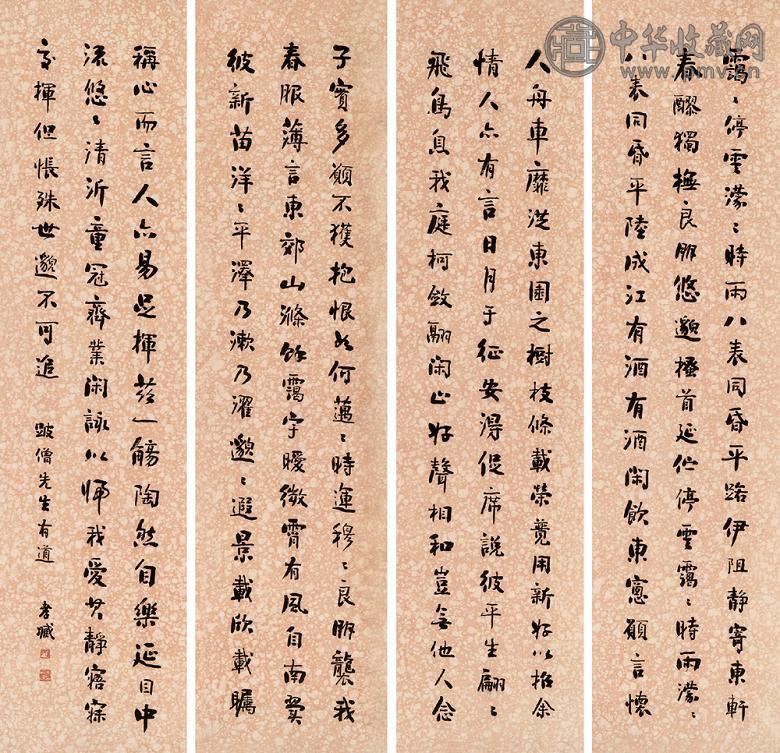 中华收藏网
靄〻停雲濛〻時雨八表同昏平路伊阻靜寄東軒
春醪獨撫良朋悠邈搔首延佇停雲靄〻時雨濛〻
八表同昏平陸成江有酒有酒閑飲東窗願言懷
人舟車靡從東園之樹枝條載榮競用新好以招余
情人亦有言日月于征安得促席說彼平生翩〻
飛鳥息我庭柯斂翮閑止好聲相和豈無他人念
子實多願不獲抱恨如何邁〻時運穆〻良朋襲我
春服薄言東郊山滌餘靄宇曖微霄有風自南翼
彼新苗洋〻平澤乃漱乃濯邈〻遐景載欣載矚
稱心而言人亦易足揮茲一觴陶然自樂延目中
流悠〻清沂童冠齊業閑詠以歸我愛其靜寤寐
交揮但悵殊世邈不可追
跛僧先生有道
孝臧